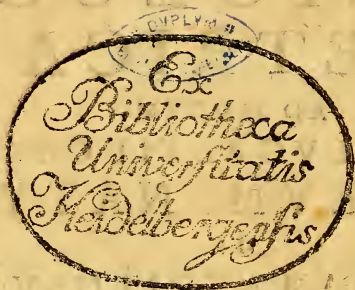 DVPLVM
Ex
Bibliotheca
Universitatis
Heidelbergensis